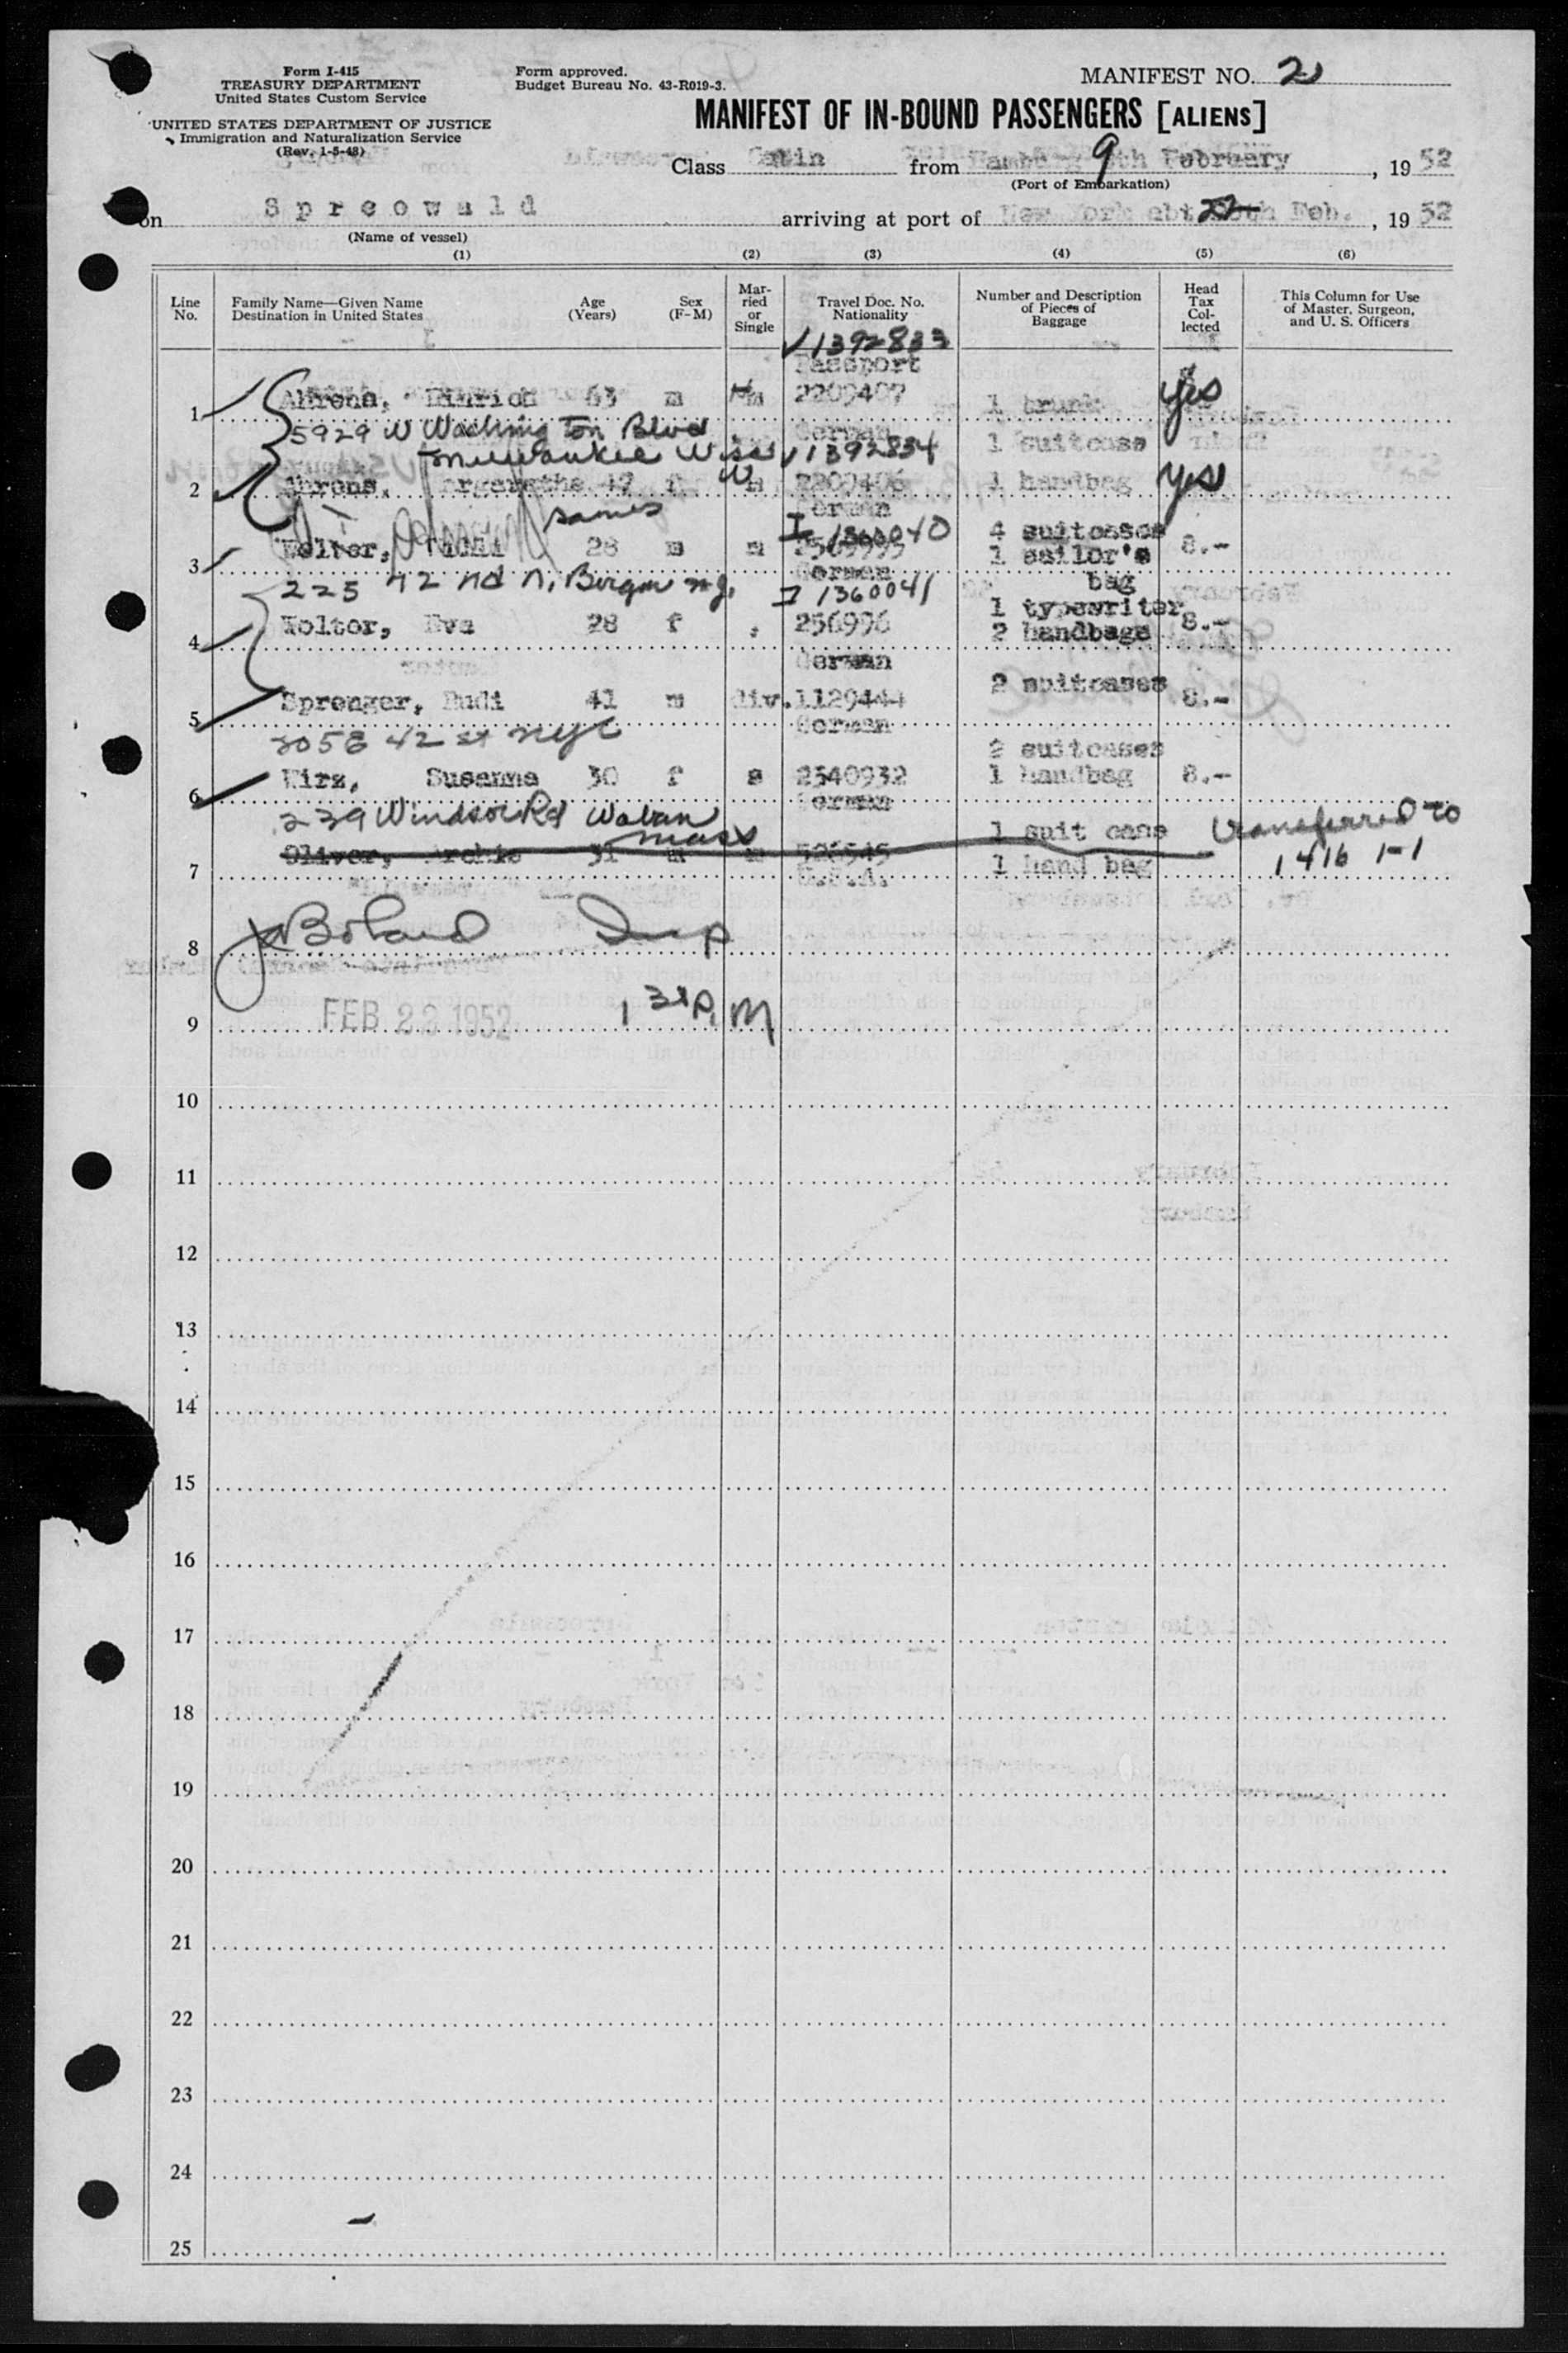 Form I-415
TREASURY DEPARTMENT
United States Custom Service
UNITED STATES DEPARTMENT OF JUSTICE
Immigration and Naturalization Service
(Rev. 1-5-48)
Form approved.
Budget Bureau No. 43-R019-3.
MANIFEST NO. 2
MANIFEST OF IN-BOUND PASSENGERS [ALIENS]
Class Cabin from Hamburg 9th February, 1952
(Port of Embarkation)
on Spreewald arriving at port of New York abt 22 Feb., 1952
(Name of vessel)
(1) (2) (3) (4) (5) (6)
Line No.
Family Name—Given Name
Destination in United States
Age (Years)
Sex (F-M)
Married or Single
Travel Doc. No.
Nationality
Number and Description of Pieces of Baggage
Head Tax Collected
This Column for Use of Master, Surgeon, and U. S. Officers
V1392833
Passport
1 Ahrens, Hinrich 63 m m 2209407 1 trunk yes
5929 W Washington Blvd German 1 suitcase
Milwaukee Wisc V1392834
2 Ahrens, 47 f 2209406 1 handbag yes
same German
I 1360040 4 suitcases
3 Wolter, 28 m m 1 sailor's 8.-
225 42nd N. Bergen N.J. German bag
I 1360041 1 typewriter
4 Wolter, Eva 28 f 256996 2 handbags 8.-
German
5 Sprenger, Rudi 41 m div. 1129444 2 suitcases 8.-
3058 42 st NYC German
2 suitcases
6 Wirz, Susanne 30 f s 2540932 1 handbag 8.-
239 Windsor Rd Waban Mass German
7 Oliver, Archie 31 m m 526545 1 suit case transferred to
U.S.A. 1 hand bag 1416 1-1
8 Boland Insp
9 FEB 23 1952 1 30 P.M
10
11
12
13
14
15
16
17
18
19
20
21
22
23
24
25